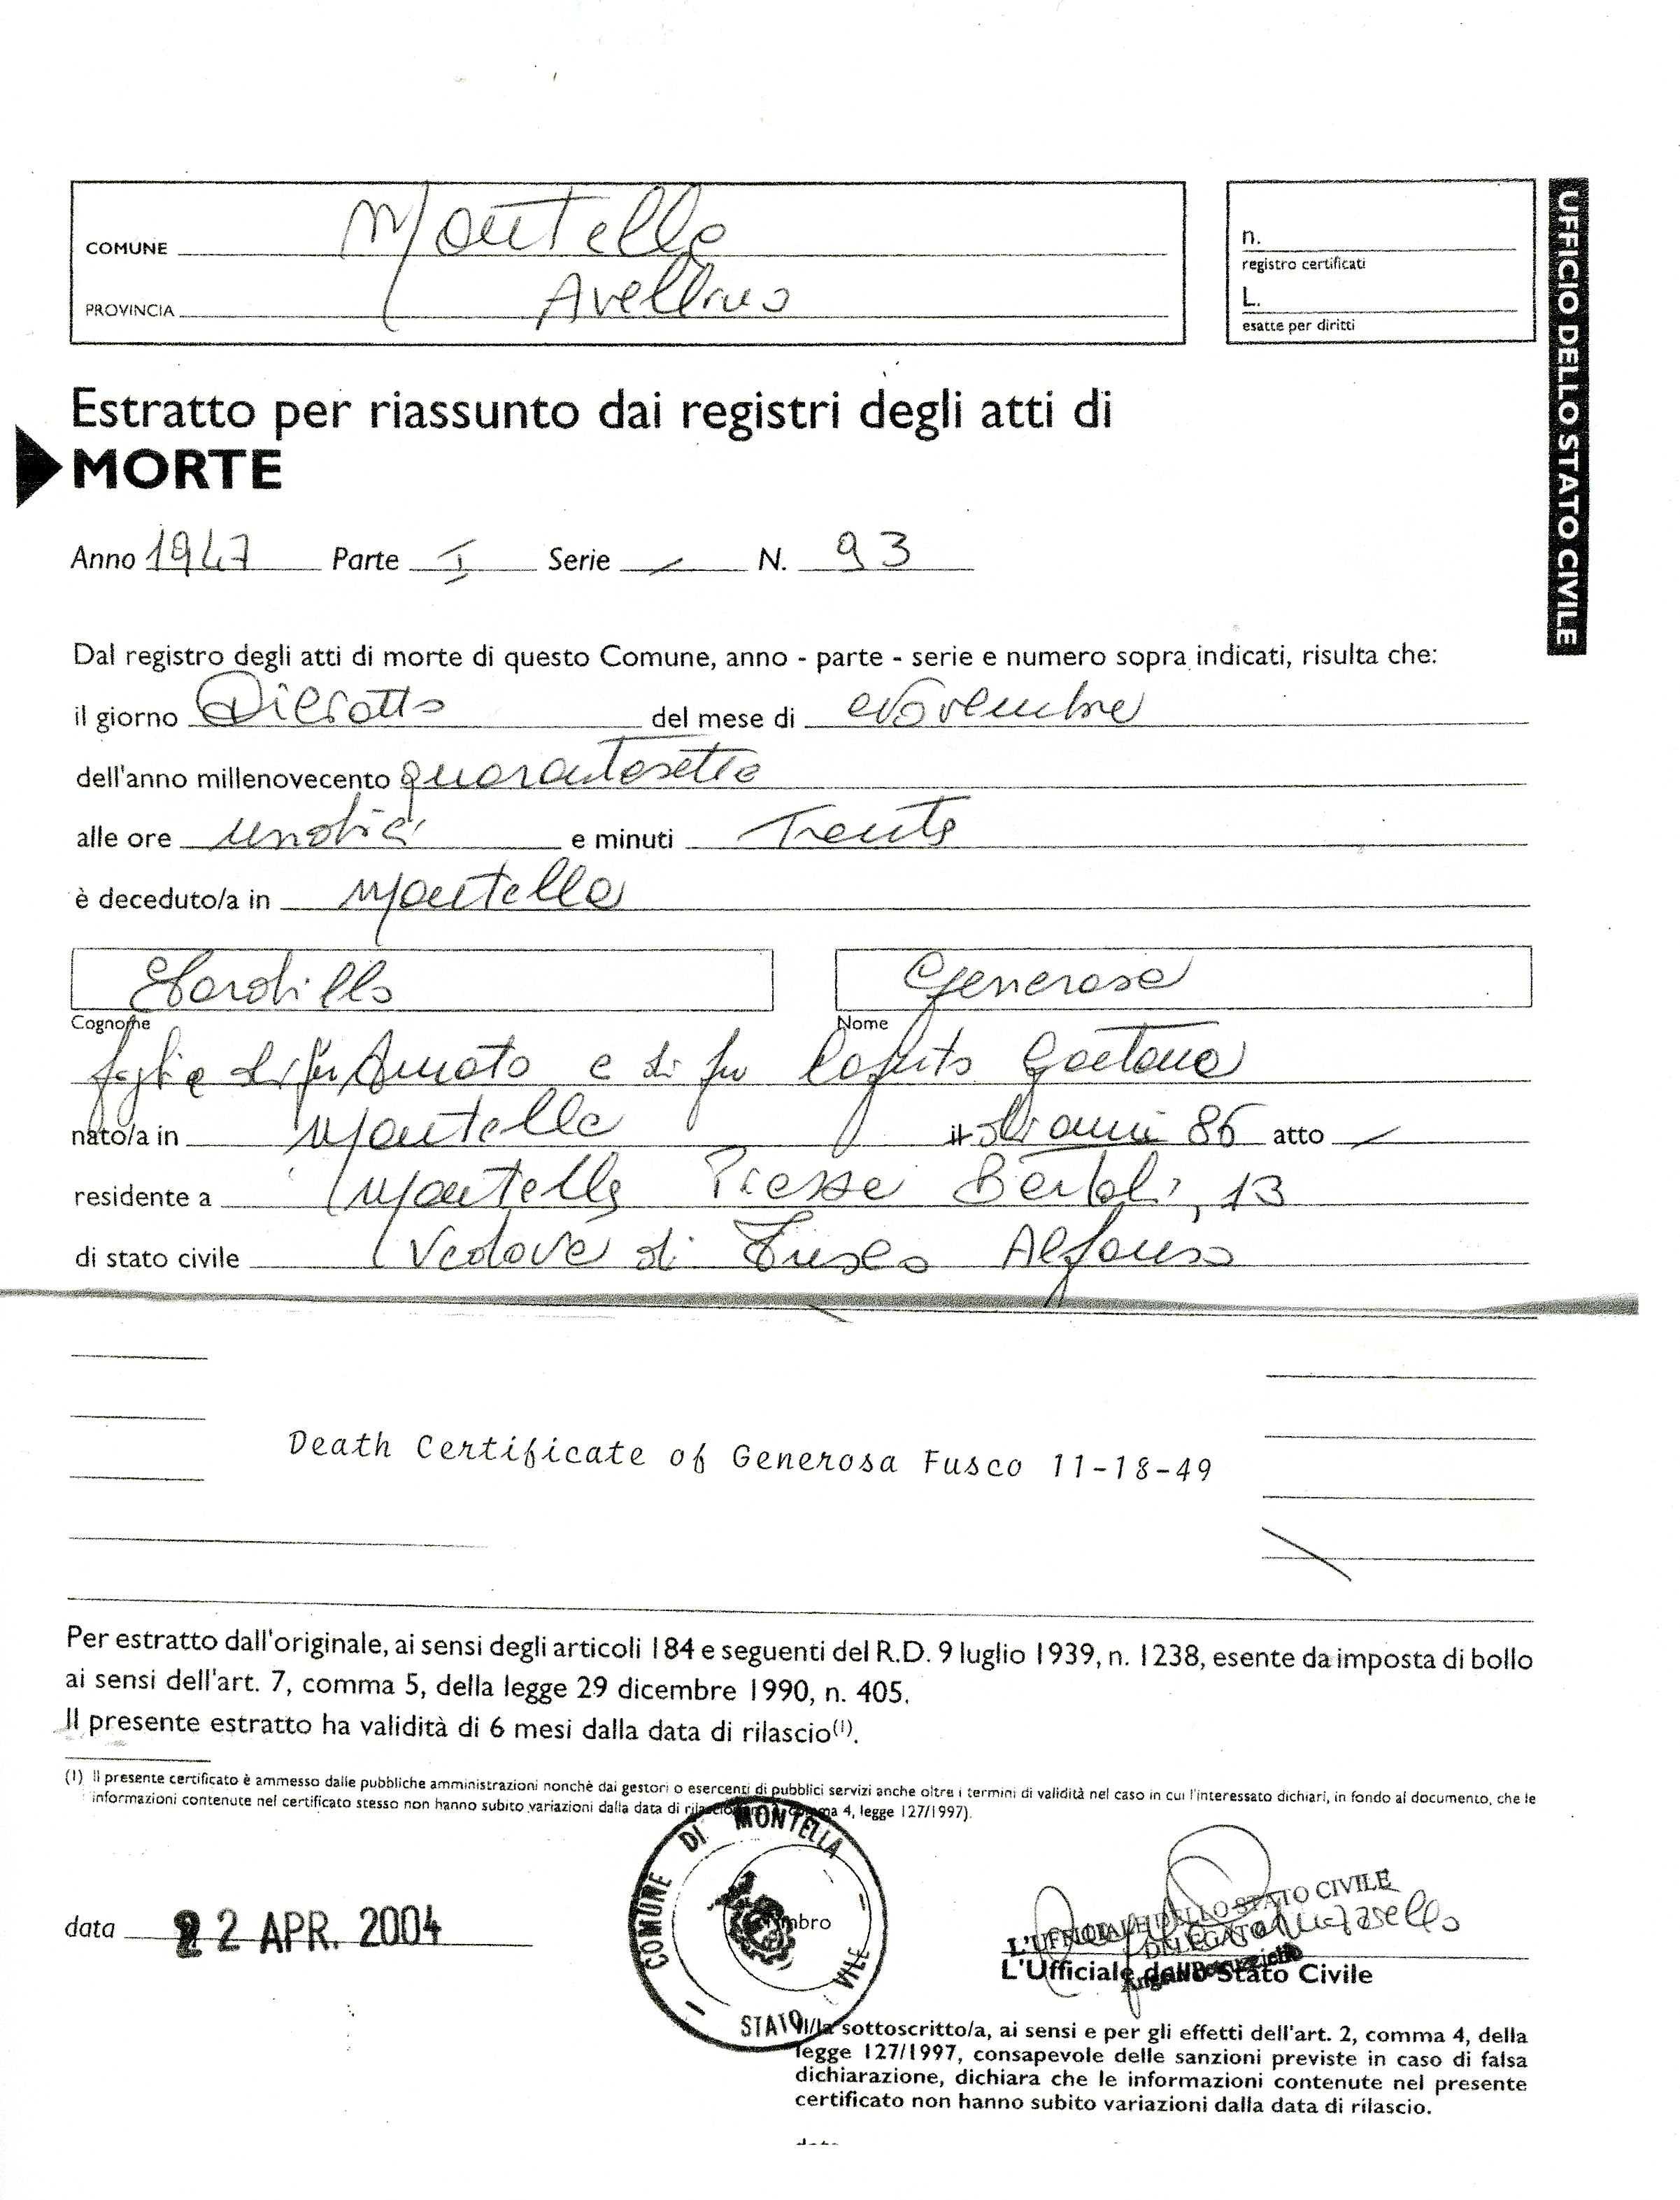 UFFICIO DELLO STATO CIVILE
COMUNE Montella
PROVINCIA Avellino
n.
registro certificati
L.
esatte per diritti
Estratto per riassunto dai registri degli atti di
MORTE
Anno 1947 Parte I Serie / N. 93
Dal registro degli atti di morte di questo Comune, anno - parte - serie e numero sopra indicati, risulta che:
il giorno Diciotto del mese di Novembre
dell'anno millenovecento quarantasette
alle ore undici e minuti Trenta
è deceduto/a in Montella
Generosa
Cognome Nome
figlia di fu Amato e di fu Gaetana
nato/a in Montella il di anni 86 atto /
residente a Montella 13
di stato civile Vedova di Fusco Alfonso
Death Certificate of Generosa Fusco 11-18-49
Per estratto dall'originale, ai sensi degli articoli 184 e seguenti del R.D. 9 luglio 1939, n. 1238, esente da imposta di bollo
ai sensi dell'art. 7, comma 5, della legge 29 dicembre 1990, n. 405.
Il presente estratto ha validità di 6 mesi dalla data di rilascio(1).
(1) Il presente certificato è ammesso dalle pubbliche amministrazioni nonchè dai gestori o esercenti di pubblici servizi anche oltre i termini di validità nel caso in cui l'interessato dichiari, in fondo al documento, che le
informazioni contenute nel certificato stesso non hanno subito variazioni dalla data di comma 4, legge 127/1997).
COMUNE DI MONTELLA
STATO
data 22 APR. 2004
L'UFFICIALE DELLO STATO CIVILE
DELEGATO
L'Ufficiale dello Stato Civile
Il/la sottoscritto/a, ai sensi e per gli effetti dell'art. 2, comma 4, della
legge 127/1997, consapevole delle sanzioni previste in caso di falsa
dichiarazione, dichiara che le informazioni contenute nel presente
certificato non hanno subito variazioni dalla data di rilascio.